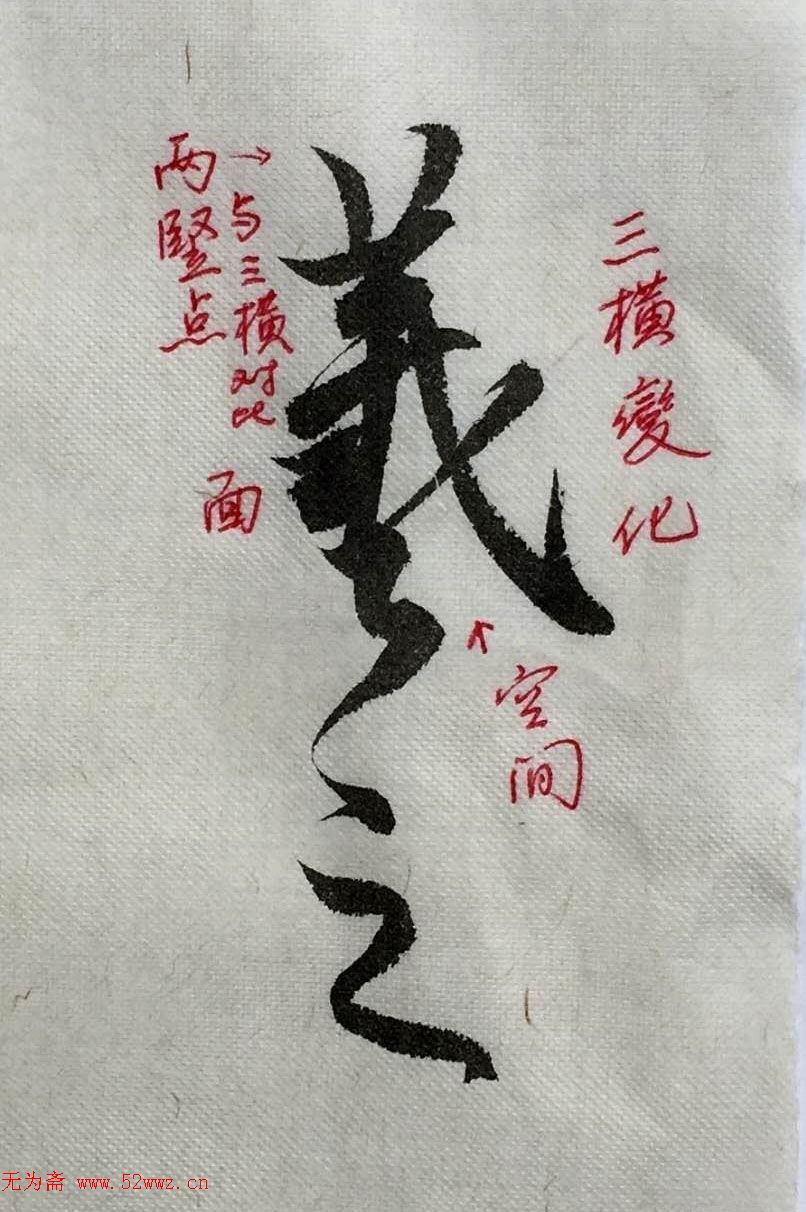 羲之
两竖点
→与三横对比
面
三横變化
空间
无为斋 www.52wwz.cn